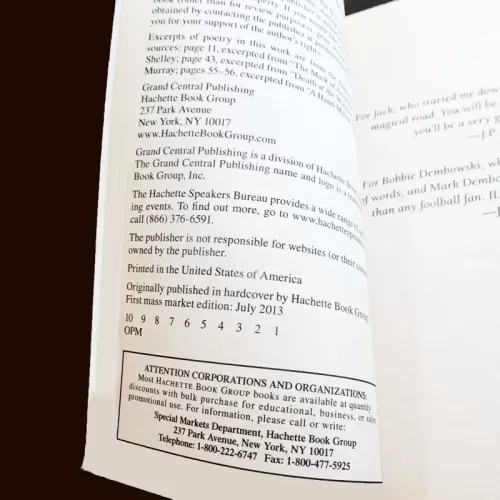 book (other than for review purposes)
obtained by contacting the publisher at
you for your support of the author's rights.
Excerpts of poetry in this work are from the
sources: page 11, excerpted from "The Mask of
Shelley; page 43, excerpted from "Death at the
Murray; pages 55–56, excerpted from "A Hand
Grand Central Publishing
Hachette Book Group
237 Park Avenue
New York, NY 10017
www.HachetteBookGroup.com
Grand Central Publishing is a division of Hachette
The Grand Central Publishing name and logo is a
Book Group, Inc.
The Hachette Speakers Bureau provides a wide range of
ing events. To find out more, go to www.hachettespeakers
call (866) 376-6591.
The publisher is not responsible for websites (or their
owned by the publisher.
Printed in the United States of America
Originally published in hardcover by Hachette Book Group
First mass market edition: July 2013
10 9 8 7 6 5 4 3 2 1
OPM
ATTENTION CORPORATIONS AND ORGANIZATIONS:
Most HACHETTE BOOK GROUP books are available at quantity
discounts with bulk purchase for educational, business, or sales
promotional use. For information, please call or write:
Special Markets Department, Hachette Book Group
237 Park Avenue, New York, NY 10017
Telephone: 1-800-222-6747 Fax: 1-800-477-5925
For Jack, who started me down
magical road. You will be
you'll be a very g
—J.P.
For Bobbie Dembowski, wh
of words, and Mark Dembo
than any football Jan. IL
—J